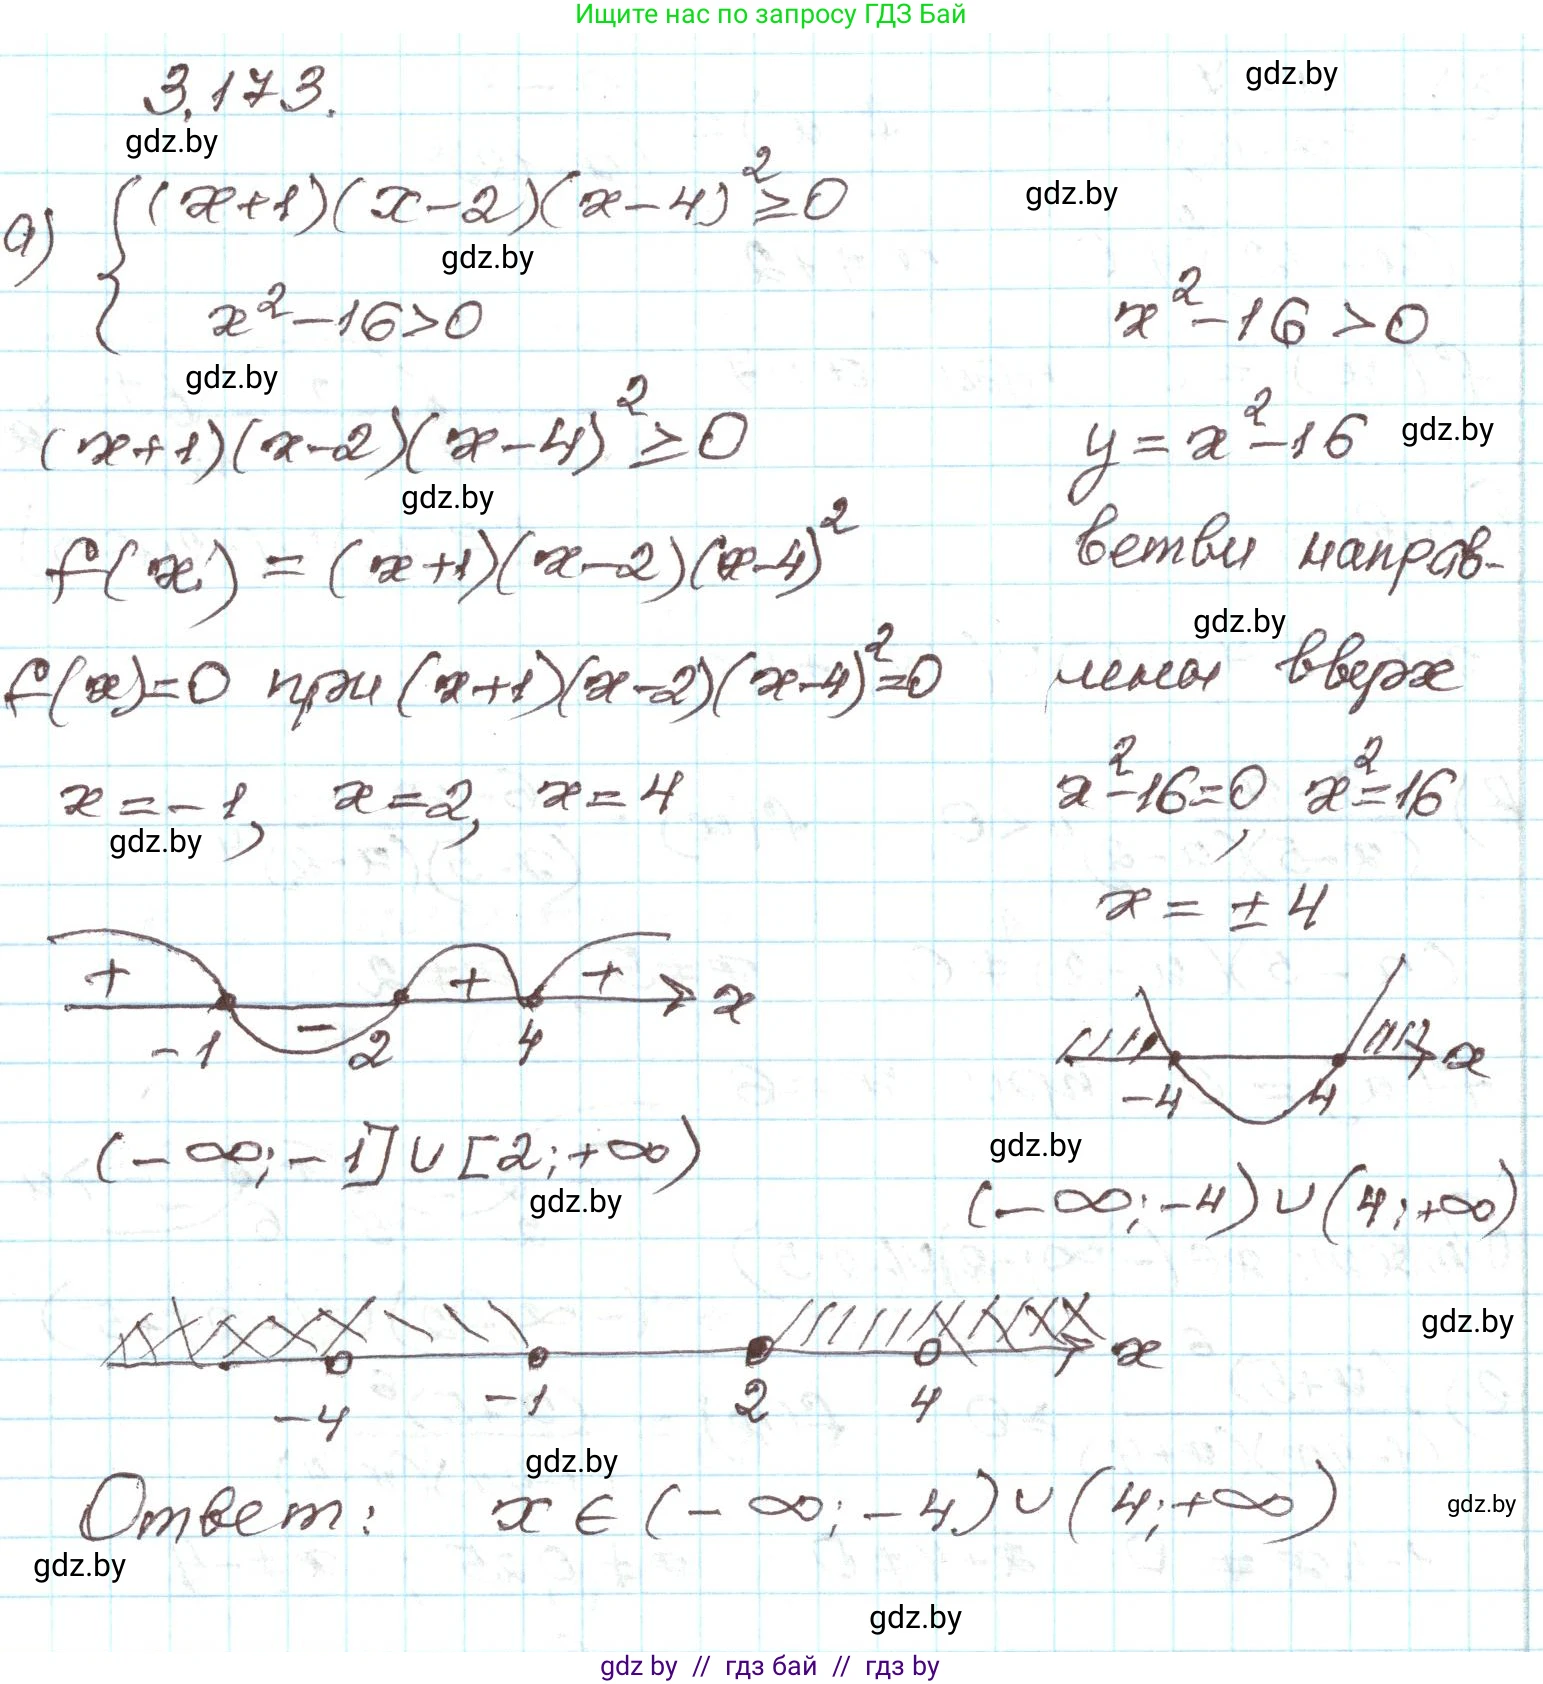 Ищите нас по запросу ГДЗ Бай
3.173.
gdz.by
gdz.by
а) { (x+1)(x-2)(x-4)² ≥ 0
gdz.by
gdz.by
x² - 16 > 0
gdz.by
(x+1)(x-2)(x-4)² ≥ 0
gdz.by
f(x) = (x+1)(x-2)(x-4)²
f(x)=0 при (x+1)(x-2)(x-4)²=0
x = -1, x = 2, x = 4
gdz.by
+ - + + x
-1 2 4
(-∞; -1] ∪ [2; +∞)
gdz.by
x² - 16 > 0
y = x² - 16
gdz.by
ветви направ-
gdz.by
лены вверх
x² - 16 = 0, x² = 16
x = ± 4
x
-4 4
gdz.by
(-∞; -4) ∪ (4; +∞)
gdz.by
x
-4 -1 2 4
gdz.by
Ответ: x ∈ (-∞; -4) ∪ (4; +∞)
gdz.by
gdz.by
gdz.by
gdz by // гдз бай // гдз by